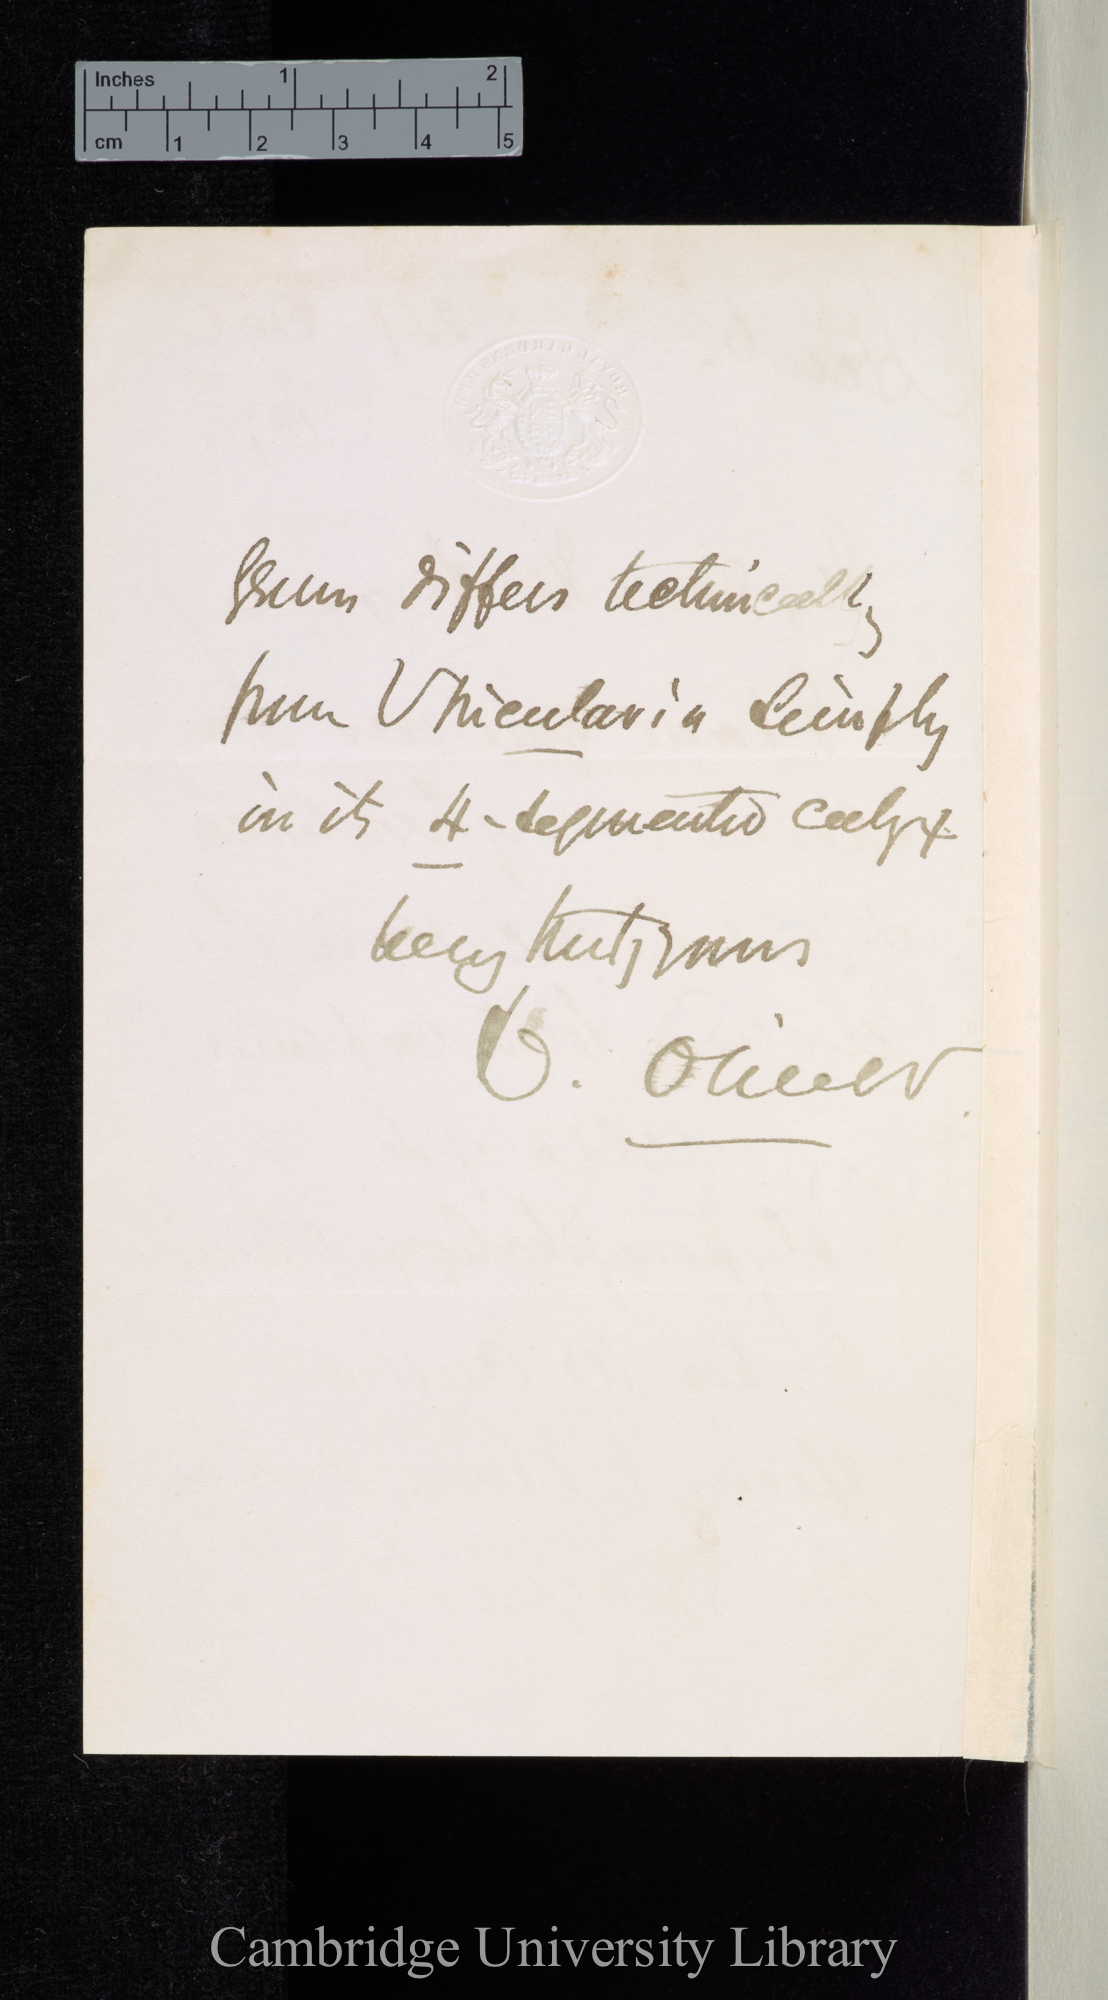 Inches 1 2
cm 1 2 3 4 5
ROYAL GARDENS KEW
Genus differs technically
from Utricularia simply
in its 4-segmented calyx
Very truly yours
D. Oliver
Cambridge University Library